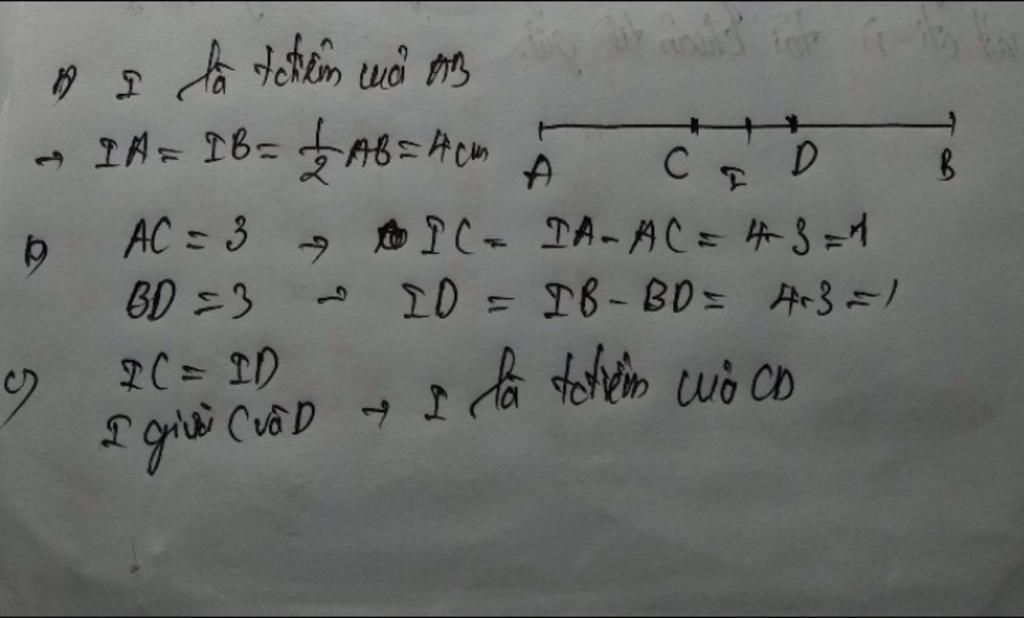 a) I là tđiểm của AB
→ IA = IB = 1/2 AB = 4cm
A C I D B
b) AC = 3 → IC = IA - AC = 4-3 = 1
BD = 3 → ID = IB - BD = 4-3 = 1
c) IC = ID
I giữa C và D → I là tđiểm của CD